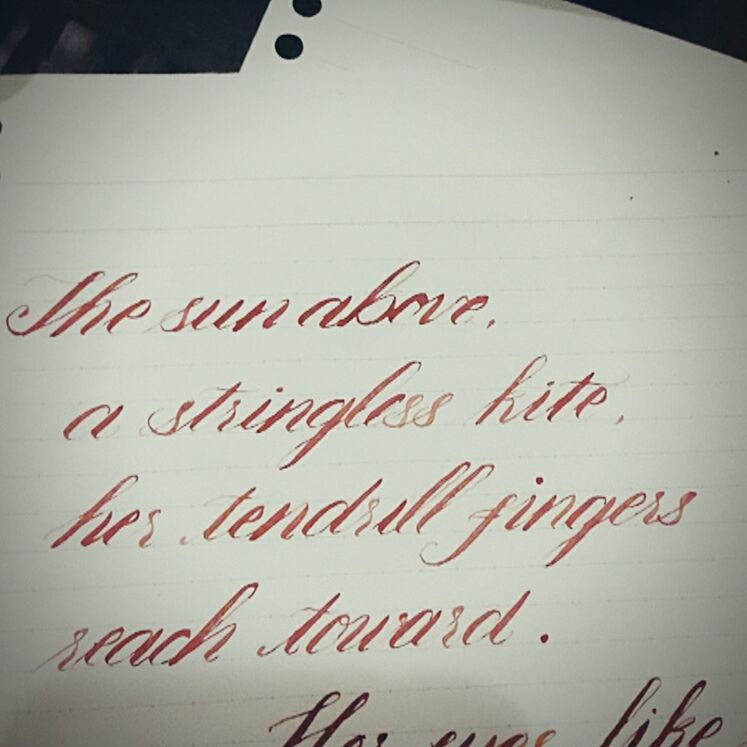 The sun above,
a stringless kite,
her tendrill fingers
reach toward.
Her eyes like